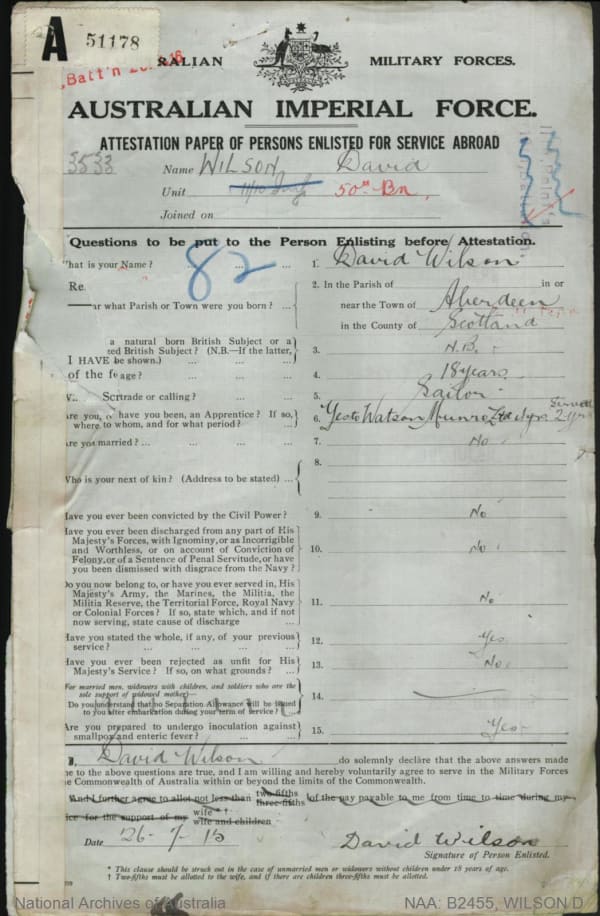 A 51178
RALIAN MILITARY FORCES.
Batt'n
AUSTRALIAN IMPERIAL FORCE.
ATTESTATION PAPER OF PERSONS ENLISTED FOR SERVICE ABROAD
3533 Name WILSON David
Unit 50th Bn.
Joined on
Questions to be put to the Person Enlisting before Attestation.
82
hat is your Name? ... ... ... 1. David Wilson
2. In the Parish of in or
Re. near the Town of Aberdeen
ar what Parish or Town were you born? ... in the County of Scotland
a natural born British Subject or a
ted British Subject? (N.B.—If the latter, 3. N.B.
I HAVE be shown.) ... ...
of the f age? ... ... ... 4. 18 years
trade or calling? ... ... 5. Sailor
re you, or have you been, an Apprentice? If so, 6. Yes to Watson Munro Ltd 4 yrs Served 2 yrs
where, to whom, and for what period? ...
re you married? ... ... ... 7. No
8.
Who is your next of kin? (Address to be stated) ...
ave you ever been convicted by the Civil Power? 9. No
ave you ever been discharged from any part of His
Majesty's Forces, with Ignominy, or as Incorrigible
and Worthless, or on account of Conviction of 10. No
Felony, or of a Sentence of Penal Servitude, or have
you been dismissed with disgrace from the Navy?
Do you now belong to, or have you ever served in, His
Majesty's Army, the Marines, the Militia, the
Militia Reserve, the Territorial Force, Royal Navy 11. No
or Colonial Forces? If so, state which, and if not
now serving, state cause of discharge ...
ave you stated the whole, if any, of your previous 12. Yes
service? ... ... ...
ave you ever been rejected as unfit for His 13. No
Majesty's Service? If so, on what grounds? ...
For married men, widowers with children, and soldiers who are the
sole support of widowed mother— 14.
Do you understand that no Separation Allowance will be issued
to you after embarkation during your term of service?
Are you prepared to undergo inoculation against 15. Yes
smallpox and enteric fever? ... ...
I, David Wilson do solemnly declare that the above answers made
me to the above questions are true, and I am willing and hereby voluntarily agree to serve in the Military Forces
the Commonwealth of Australia within or beyond the limits of the Commonwealth.
And I further agree to allot not less than two-fifths three-fifths of the pay payable to me from time to time during my
ice for the support of my wife † wife and children
Date 26-7-15 David Wilson
Signature of Person Enlisted.
* This clause should be struck out in the case of unmarried men or widowers without children under 18 years of age.
† Two-fifths must be allotted to the wife, and if there are children three-fifths must be allotted.
National Archives of Australia NAA: B2455, WILSON D